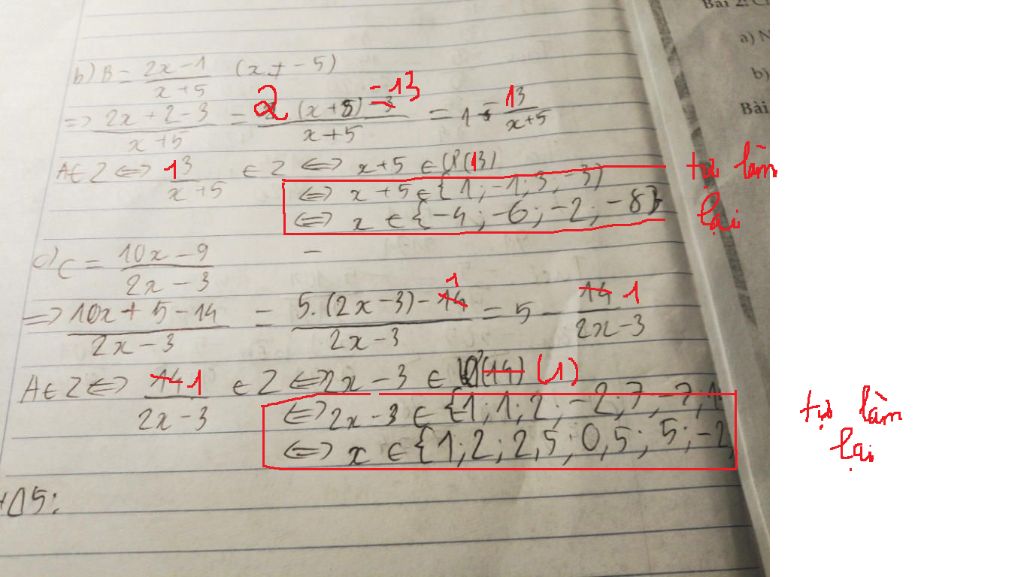 Bài 2: C
a) N
b)
Bài
b) B = \frac{2x-1}{x+5} (x ≠ -5)
=> \frac{2x+2-3}{x+5} = \frac{2 (x+5) -13}{x+5} = 1 - \frac{13}{x+5}
A∈Z <=> \frac{13}{x+5} ∈ Z <=> x+5 ∈ Ư(13)
<=> x+5 ∈ {1; -1; 3; -3}
<=> x ∈ {-4; -6; -2; -8}
tự làm
lại
c) C = \frac{10x-9}{2x-3}
=> \frac{10x+5-14}{2x-3} = \frac{5.(2x-3)-14 1}{2x-3} = 5 - \frac{14 1}{2x-3}
A∈Z <=> \frac{14 1}{2x-3} ∈ Z <=> 2x-3 ∈ Ư(14) (1)
<=> 2x-3 ∈ {1; 1; 2; -2; 7; -7; 1
<=> x ∈ {1; 2; 2,5; 0,5; 5; -2
tự làm
lại
5: